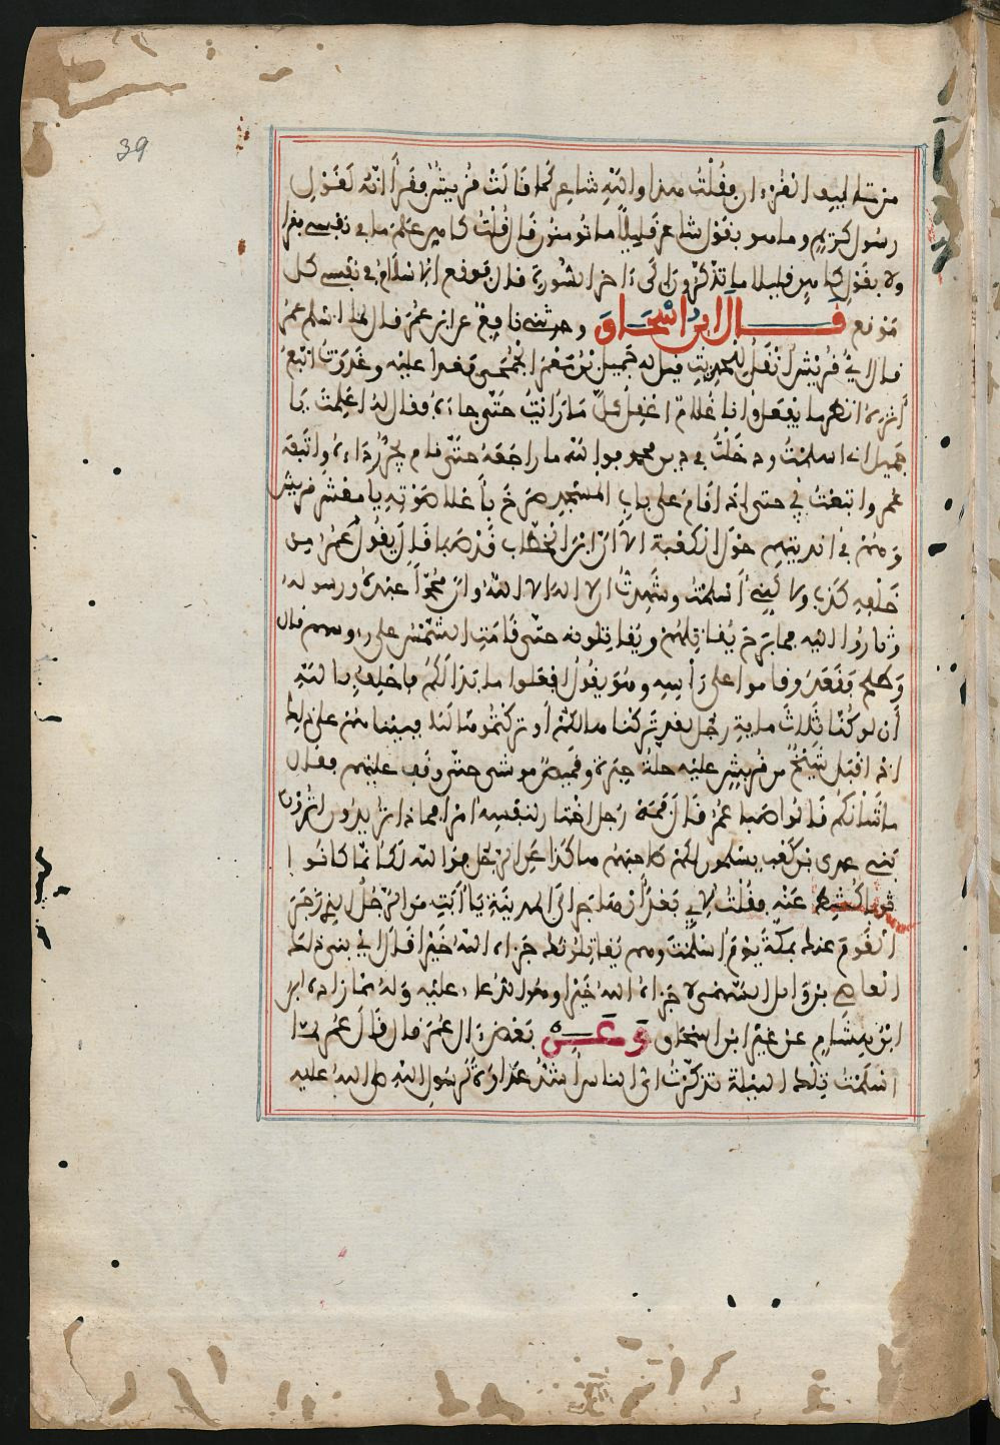 39
من تاليف القرءان فقلت هذا والله شاعر كما قالت قريش فقرأ انه لقول
رسول كريم وما هو بقول شاعر قليلا ما تومنون قال قلت كاهن علم ما في نفسي فقرا
ولا بقول كاهن قليلا ما تذكرون الى ءاخر السورة قال فوقع الاسلام في نفسي كل
موقع قال ابن اسحاق وحدثني نافع عن ابن عمر قال لما اسلم عمر
قال اي قريش انقل للحديث قيل له جميل بن معمر الجمحي فغدا عليه وغدوت اتبع
أثره انظر ما يفعل وانا غلام اعقل كل ما رأيت حتى جاءه فقال له اعلمت يا
جميل اني اسلمت ودخلت في دين محمد فوالله ما راجعه حتى قام يجر رداءه واتبعه
عمر واتبعت ابي حتى اذا قام على باب المسجد صرخ بأعلا صوته يا معشر قريش
وهم في انديتهم حول الكعبة الا ان ابن الخطاب قد صبا قال يقول عمر من
خلفه كذب ولاكني أسلمت وشهدت ان لا اله الا الله وان محمدا عبده ورسوله
وثاروا اليه فما برح يقاتلهم ويقاتلونه حتى قامت الشمس على رءوسهم قال
وطلح فقعد وقاموا على رأسه وهو يقول افعلوا ما بدا لكم فاحلف بالله
أن لو كنا ثلاث ماية رجل لقد تركناها لكم أو تركتموها لنا فبينما هم على ذلك
اذ اقبل شيخ من قريش عليه حلة حبرة وقميص موشى حتى وقف عليهم فقال
ما شأنكم قالوا صبا عمر قال فمه رجل اختار لنفسه امرا فماذا تريدون اترون
بني عدي بن كعب يسلمون لكم صاحبهم هاكذا عن الرجل فوالله لكأنما كانوا
ثوبا كشط عنه فقلت لابي بعد أن هاجر الى المدينة يا أبت من الرجل الذي زجر
القوم عنك بمكة يوم اسلمت وهم يقاتلونك جزاه الله خيرا قال اي بني ذلك
العاص بن وايل السهمي لا جزاه الله خيرا وهو الدعاء عليه وله مما زاده ابن
ابن هشام عن غير ابن اسحاق وعن بعض ءال عمر قال قال عمر لما
اسلمت تلك الليلة تذكرت اي الناس اشد عداوة لرسول الله صلى الله عليه